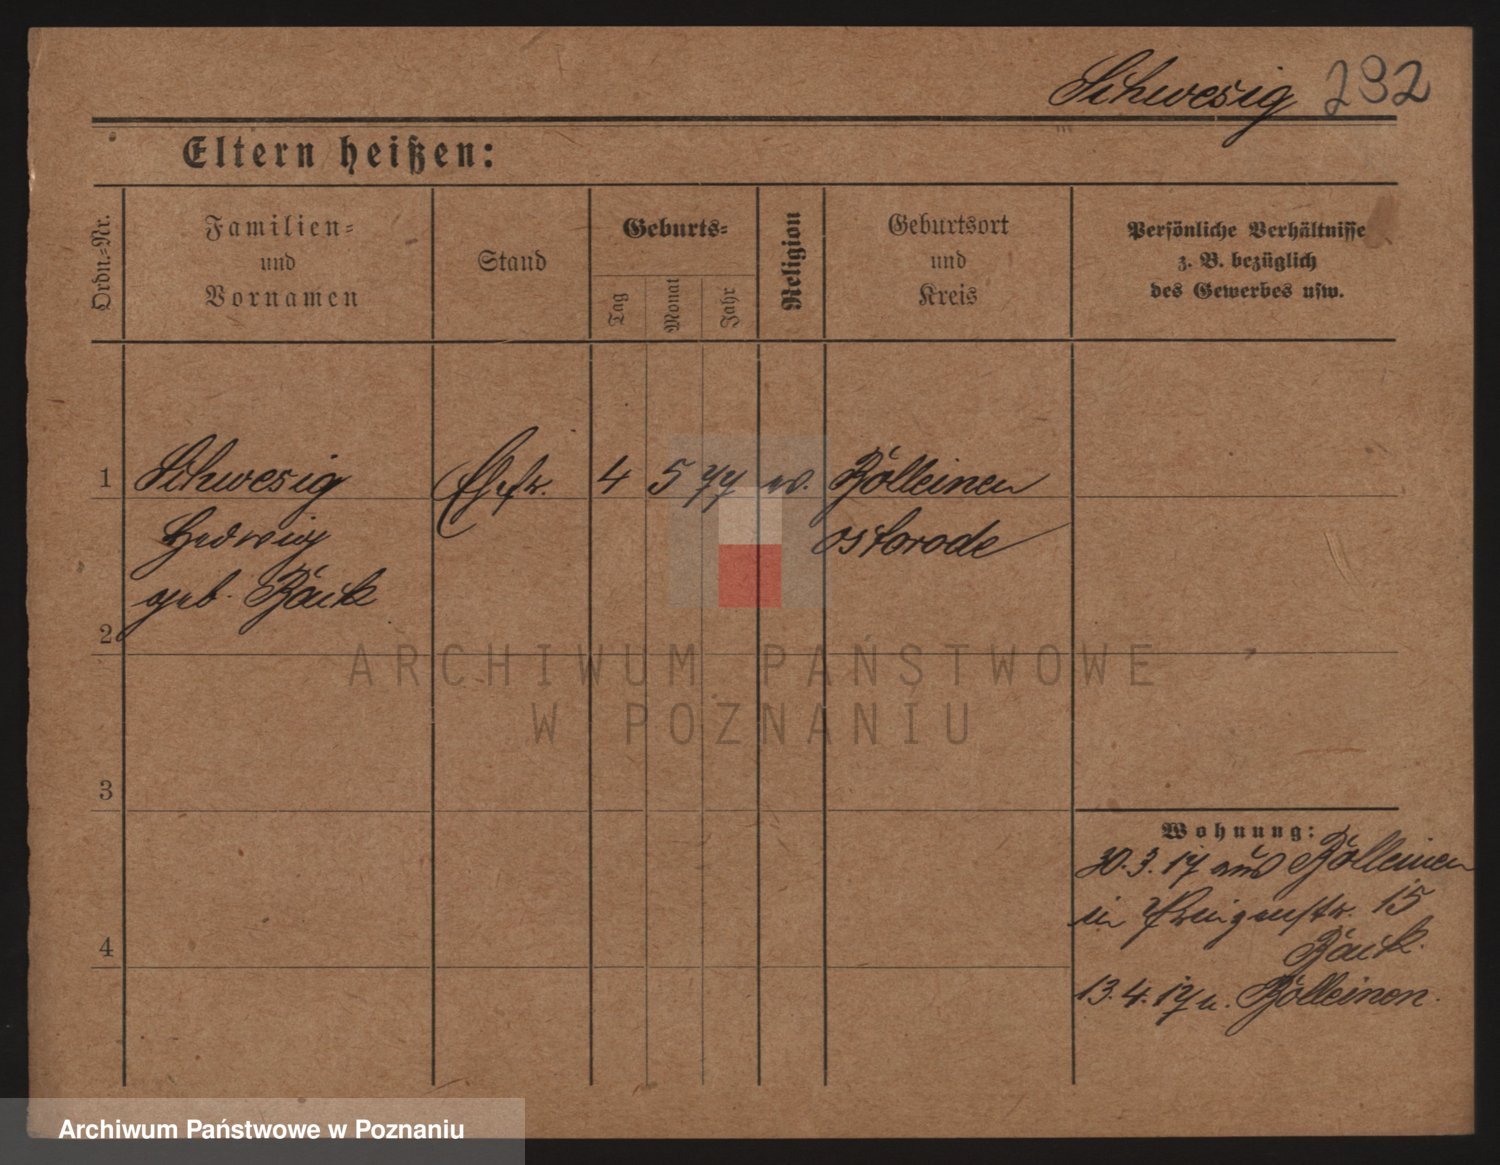 Schwesig 232
Eltern heißen:
Ordn.-Nr.
Familien-
und
Vornamen
Stand
Geburts-
Tag
Monat
Jahr
Religion
Geburtsort
und
Kreis
Persönliche Verhältnisse
z. B. bezüglich
des Gewerbes usw.
1 Schwesig Ehefr. 4 5 77 Bölleinen
Hedwig osterode
geb.
2
ARCHIWUM PAŃSTWOWE
W POZNANIU
3
Wohnung:
30.3.17 aus Bölleinen
in 15
4
13.4.17 n. Bölleinen.
Archiwum Państwowe w Poznaniu